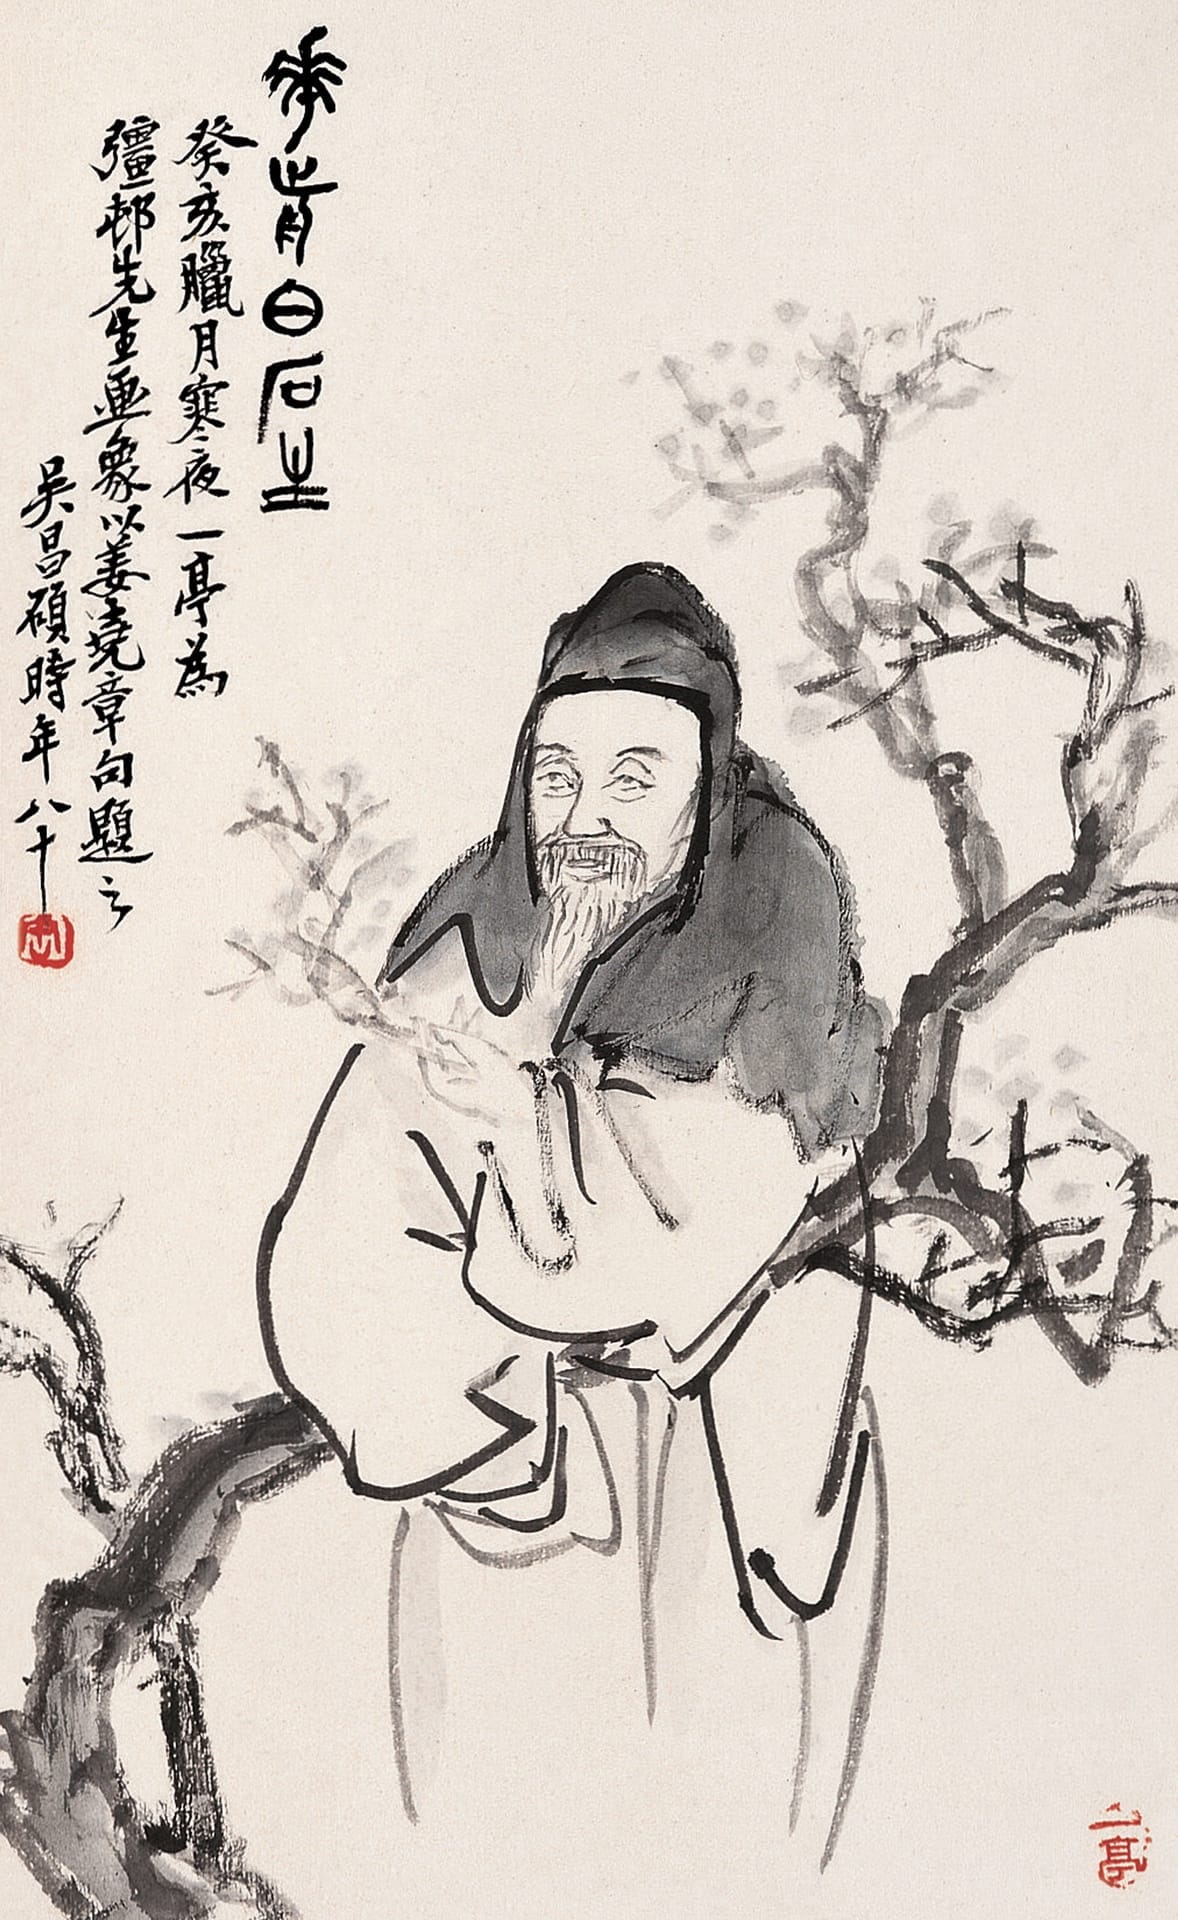 華前白石生
癸亥臘月寒夜一亭為
彊邨先生畫象以姜堯章句題之
吳昌碩時年八十
一亭